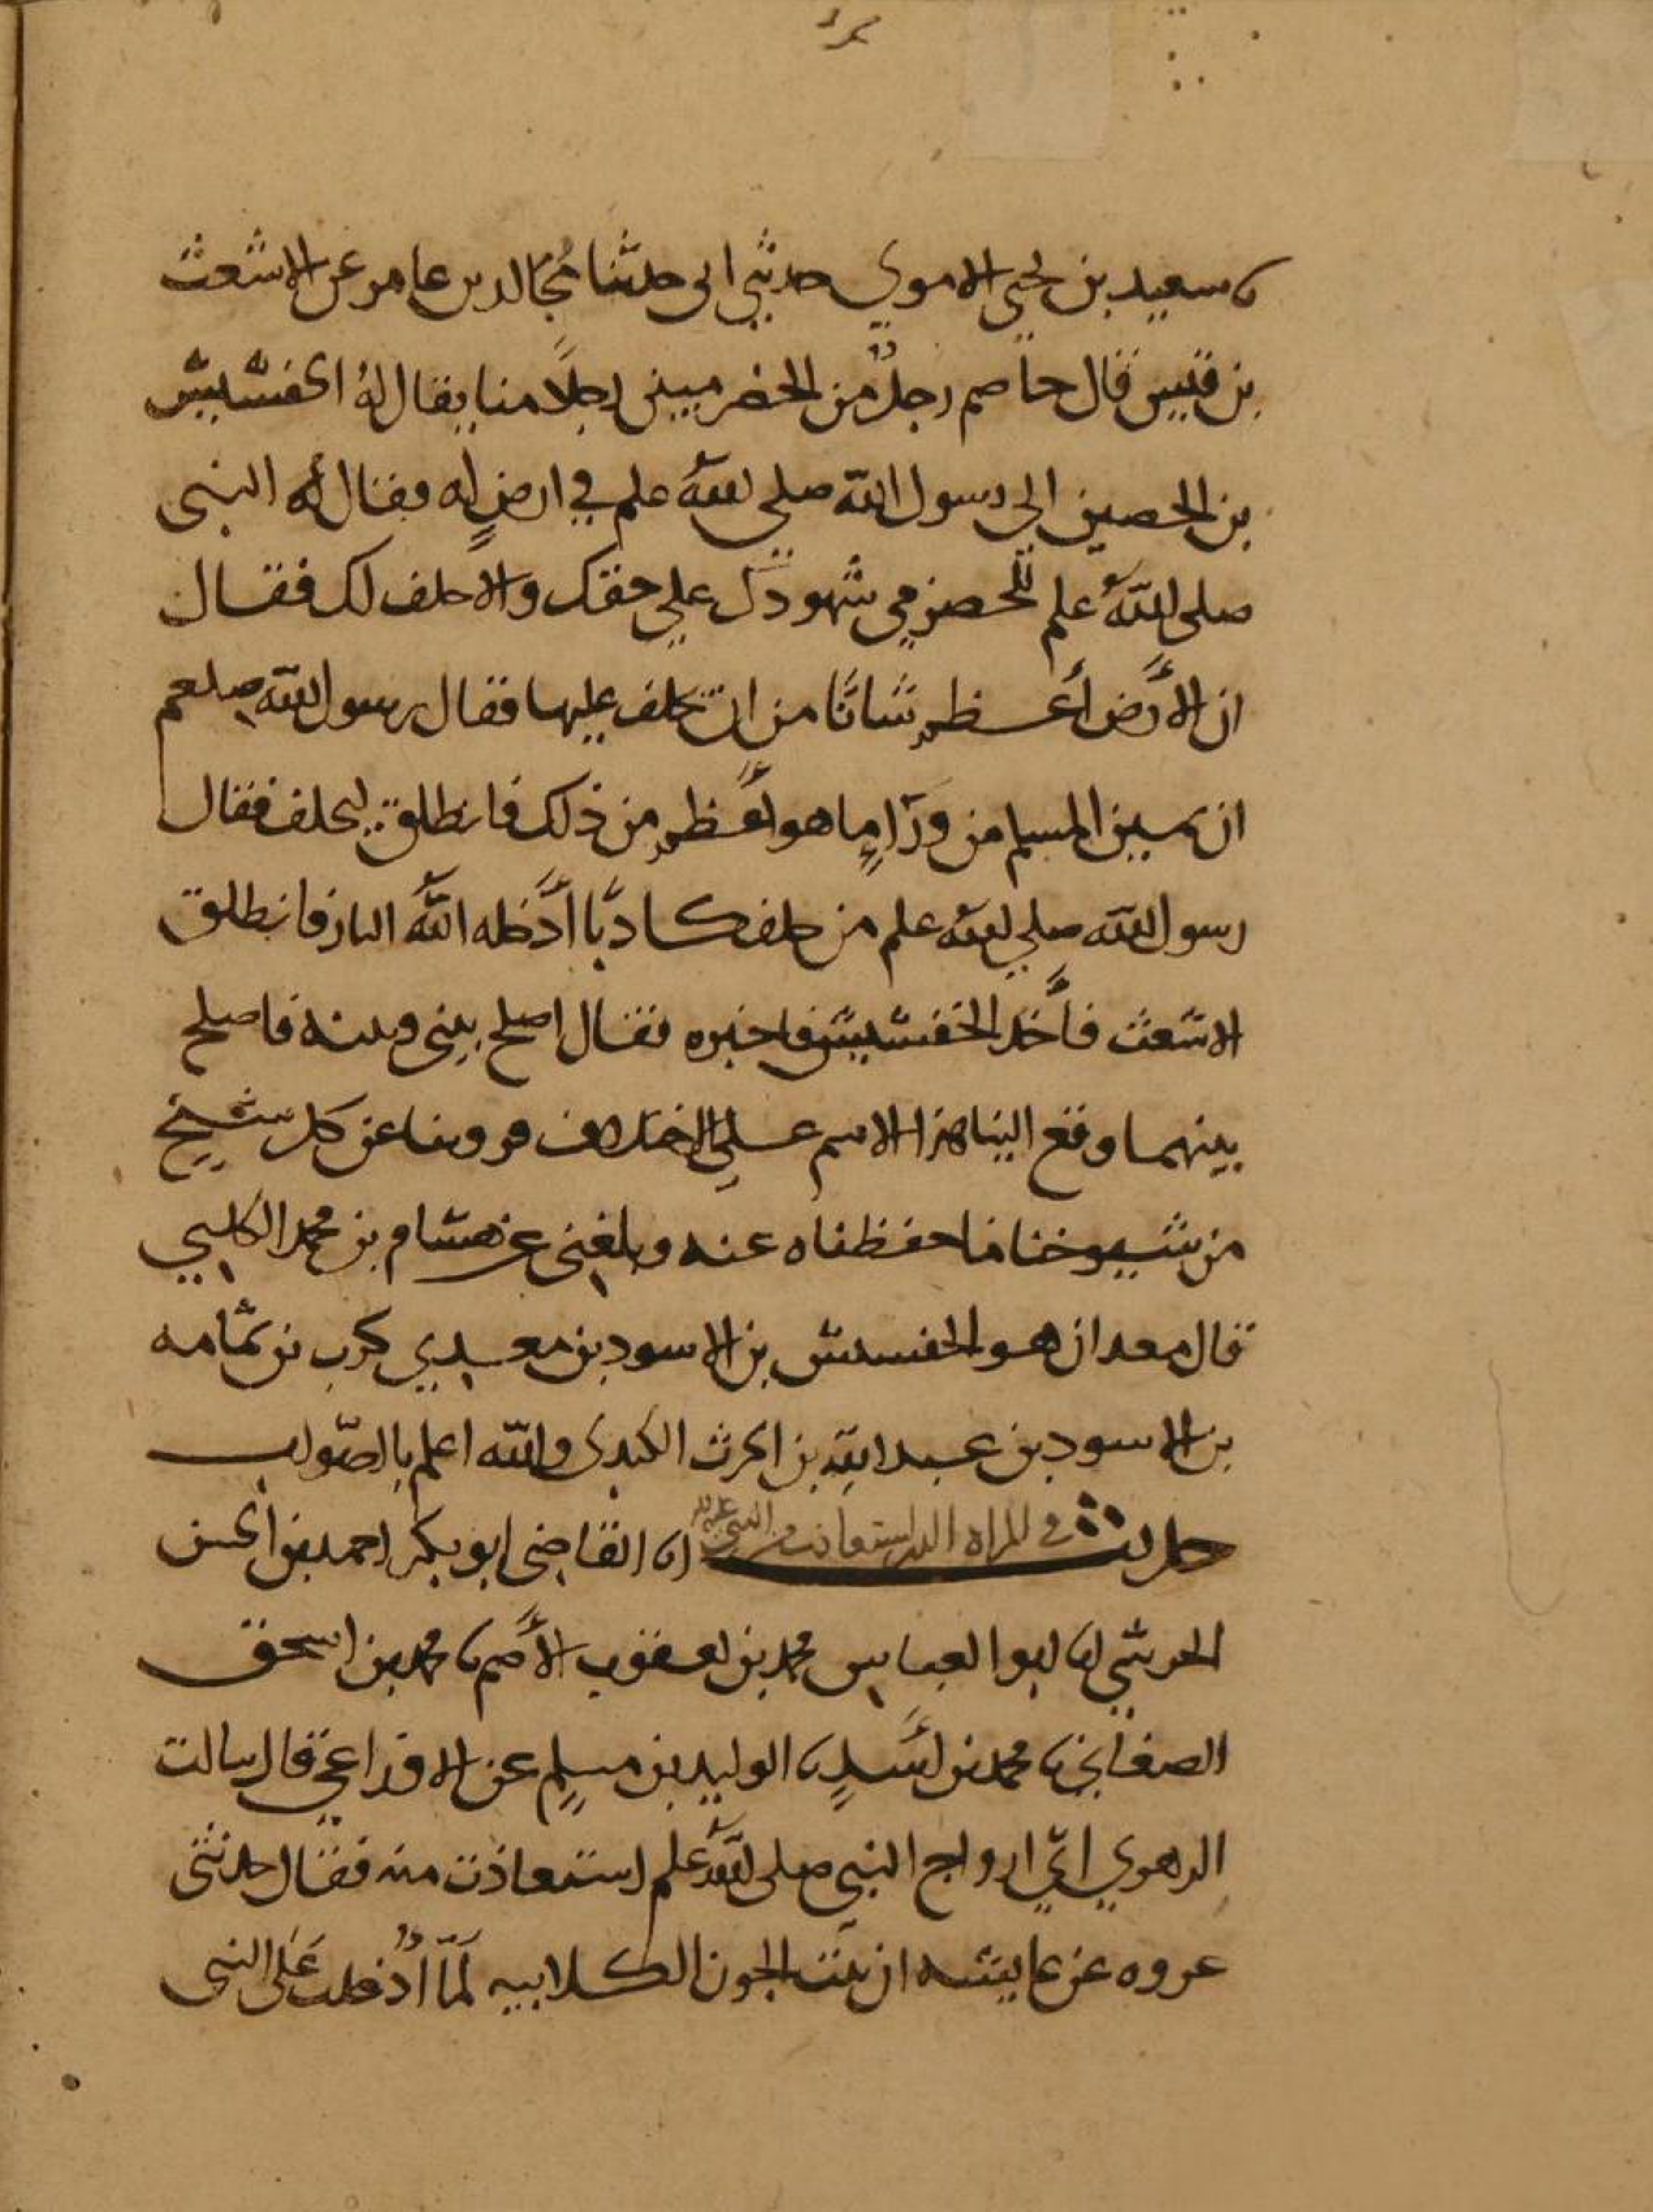 نا سعيد بن يحيى الاموي حدثني ابى حدثنا مُجَالد بن عامر عن الاشعث
بن قيس قال خاصم رجلٌ من الحضرميين رجلًا منا يقال لهُ الخفشيش
بن الحصين الى رسول الله صلى اللهُ علم في ارضٍ له فقال له النبى
صلى اللهُ علم للحضرمي شهودك علي حقك والا حلف لك فقال
ان الأَرض أعظم شانًا من ان يحلف عليها فقال رسول الله صلعم
ان يمين المسلم من وَرَآءِ ما هو أعظم من ذلك فانطلق ليحلف فقال
رسول الله صلي الله علم من حلف كاذبًا أَدْخله اللهُ النار فانطلق
الاشعث فأَخذ الخفشيش فاخبره فقال اصلح بينى وبينه فاصلح
بينهما وقع الينا هذا الاسم علي الاختلاف فروينا عن كل شيخ
من شيوخنا ما حفظناه عنه وبلغنى عن هشام بن محمد الكلبي
قال معدان هو الخفشيش بن الاسود بن معدي كرب بن ثمامه
بن الاسود بن عبد الله بن الحرث الكندى والله اعلم بالصّواب
حديث في المراه التى استعاذت من النبى انا القاضى ابو بكر احمد بن الحسن
الحرشي نا ابو العباس محمد بن يعقوب الأَصم نا محمد بن اسحق
الصغاني نا محمد بن أَسَدٍ نا الوليد بن مسلمٍ عن الاوزاعي قال سالت
الزهري اىّ ازواج النبي صلى اللهُ علم استعاذت منه فقال حدثنى
عروه عن عايشه ان بنت الجون الكلابيه لَمَّا أُدْخلت عَلى النبى